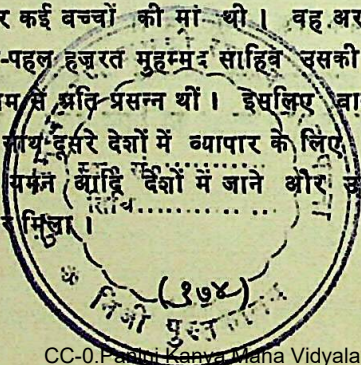 र कई बच्चों की मां थी । वह अर
-पहल हज़रत मुहम्मद साहिब उसकी
म से प्रति प्रसन्न थीं । इसलिए वा
साथ दूसरे देशों में व्यापार के लिए
यमन आदि देशों में जाने और उ
र मिला ।
तिथि
(१७४)
निजी पुस्तकालय
CC-0.Panini Kanya Maha Vidyala